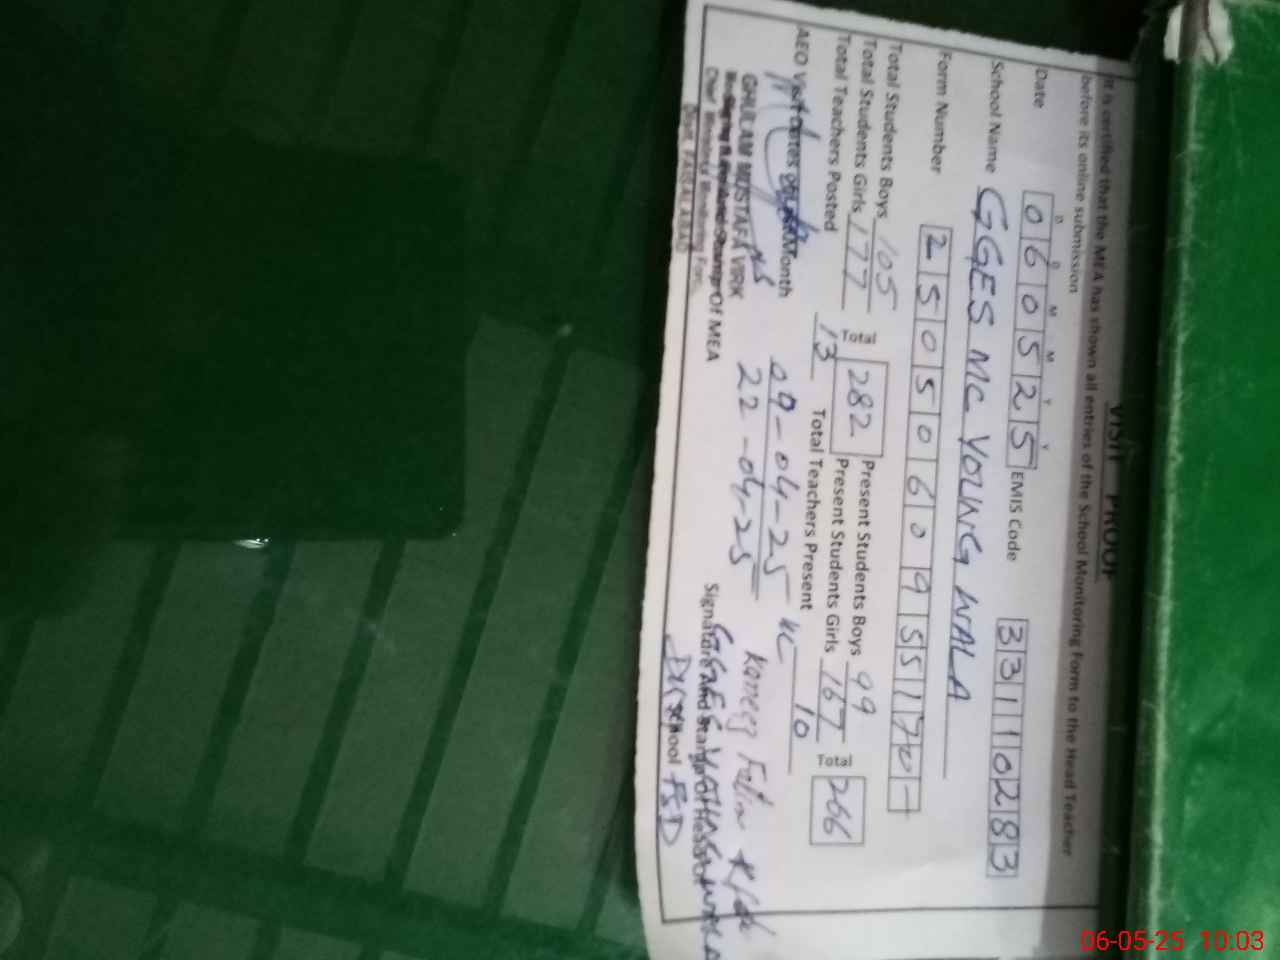 VISIT PROOF
It is certified that the MEA has shown all entries of the School Monitoring Form to the Head Teacher
before its online submission
D D M M Y Y
Date 060525 EMIS Code 33110283
School Name GGES MC YOUNG WALA
Form Number 2505060955170-
Total Students Boys 105 Present Students Boys 99
Total Students Girls 177 Total 282 Present Students Girls 167 Total 266
Total Teachers Posted 13 Total Teachers Present 10
AEO Visit Dates Month 09-04-25
22-04-25
GHULAM MUSTAFA VIRK
Of MEA
Chief Minister Monitoring For
Distt. FAISALABAD
Signature and Stamp Of
GGES
School FSD
06-05-25 10.03